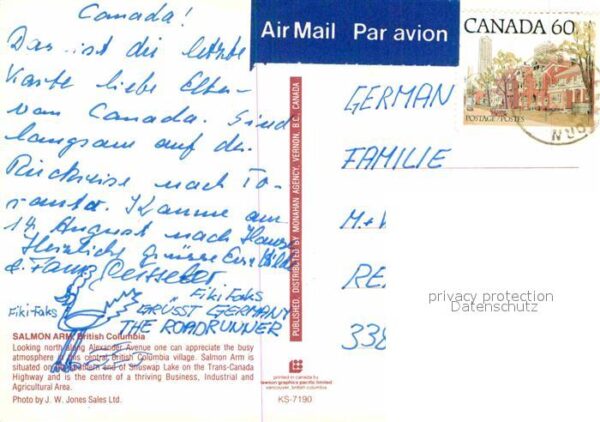 Canada!
Das ist die letzte
Karte liebe Elter-
von Canada. Sind
langsam auf der
Rückreise nach To-
ronto. Komme am
14. August nach Hause
Herzliche Grüsse Eure
d. Fam.
Fiki-Faks
Fiki Faks
GRÜSST GERMANY
THE ROADRUNNER
SALMON ARM, British Columbia
Looking north along Alexander Avenue one can appreciate the busy
atmosphere of this central British Columbia village. Salmon Arm is
situated on the Salmon Arm of Shuswap Lake on the Trans-Canada
Highway and is the centre of a thriving Business, Industrial and
Agricultural Area.
Photo by J. W. Jones Sales Ltd.
PUBLISHED, DISTRIBUTED BY MONAHAN AGENCY, VERNON, B.C. CANADA
printed in canada by
lawson graphics pacific limited
vancouver, british columbia
KS-7190
Air Mail Par avion
CANADA 60
POSTAGE POSTES
GERMAN
FAMILIE
M.+V
RE
338
privacy protection
Datenschutz